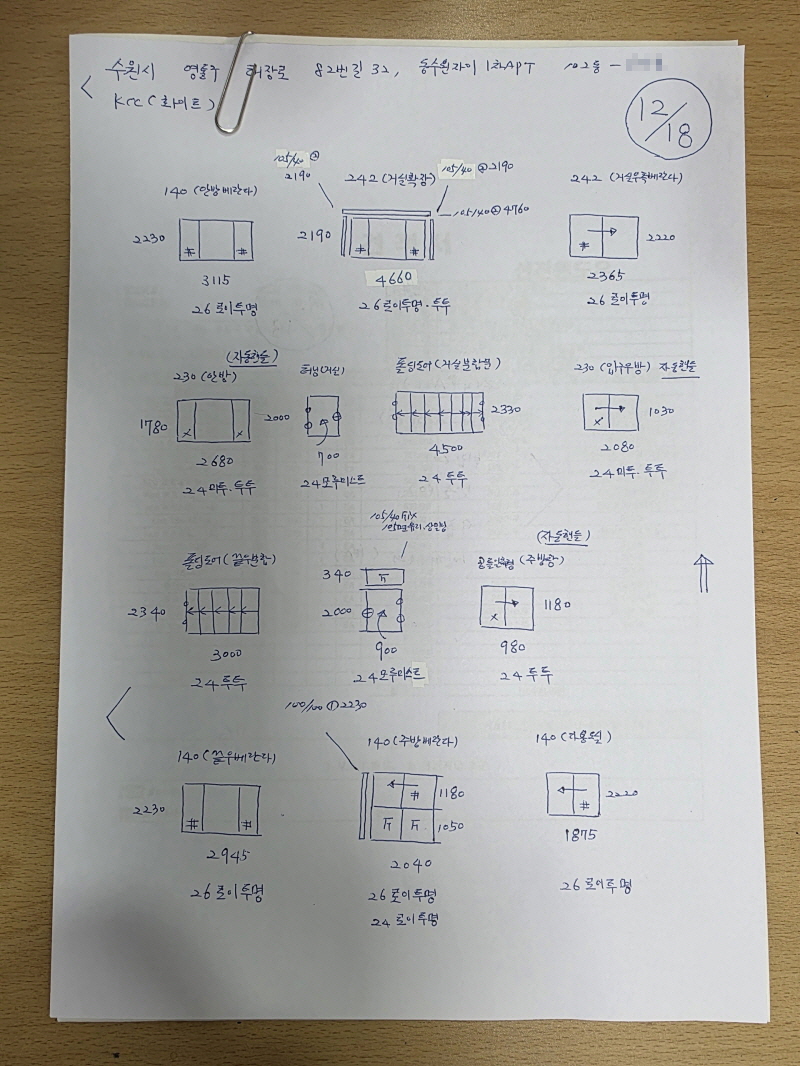 수원시 영통구 82번길 32, 동수원자이 1차APT 102동 -
KCC (화이트)
12/18
105/40 ②
2190
140 (안방베란다)
242 (거실확장)
105/40 ②2190
105/40 ② 4760
242 (거실우측베란다)
2230
2190
2220
3115
4660
2365
26 로이투명
26 로이투명·투투
26 로이투명
(자동핸들)
230 (안방)
폴딩도어 (거실분합문)
230 (입구우방) 자동핸들
1780
2000
2330
1030
2680
700
4500
2080
24 미투·투투
24 모루미스트
24 투투
24 미투·투투
105/40 FIX
(자동핸들)
폴딩도어 (끝우분합)
340
(주방창)
2340
2000
1180
3000
900
980
24 투투
24 모루미스트
24 투투
100/100 ① 2230
140 (끝우베란다)
140 (주방베란다)
140 (다용도실)
2230
1180
1050
2220
2945
2040
1875
26 로이투명
26 로이투명
26 로이투명
24 로이투명